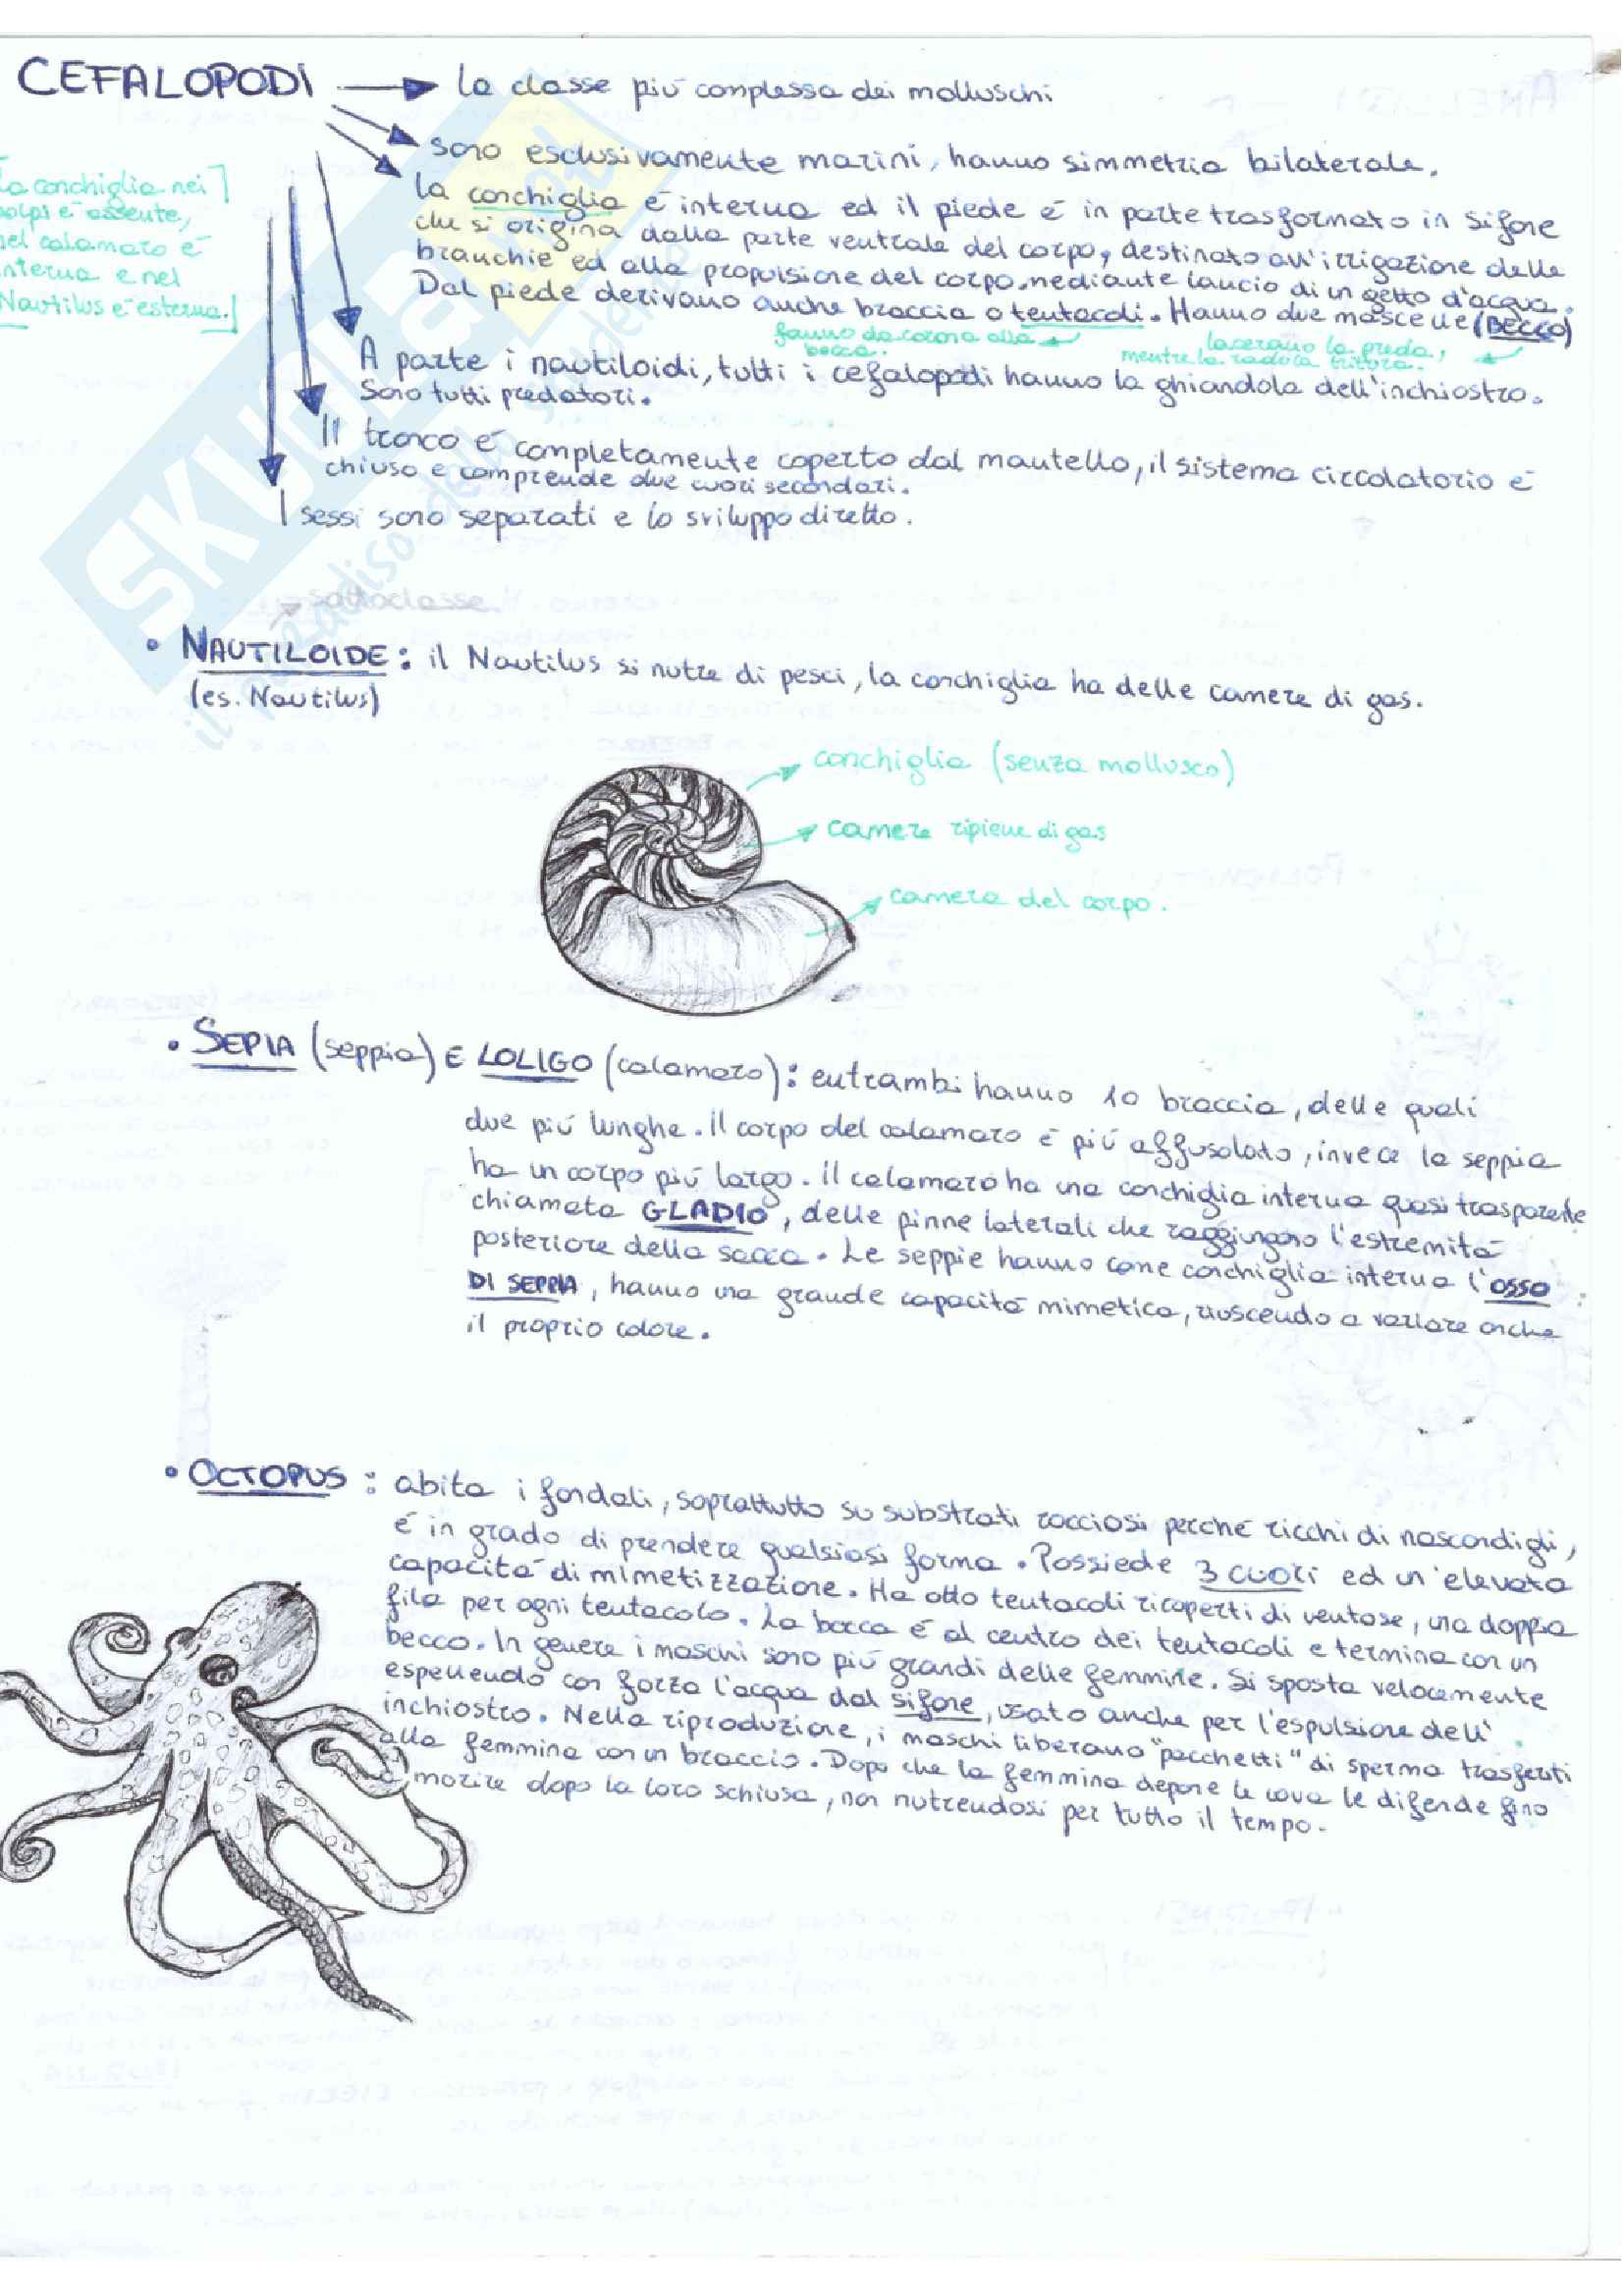 CEFALOPODI → la classe più complessa dei molluschi
sono esclusivamente marini, hanno simmetria bilaterale.
la conchiglia è interna ed il piede è in parte trasformato in sifone
che si origina dalla parte ventrale del corpo, destinato all'irrigazione delle
branchie ed alla propulsione del corpo mediante lancio di un getto d'acqua.
Dal piede derivano anche braccia o tentacoli. Hanno due mascelle (BECCO)
fanno da corona alla
bocca.
lacerano la preda,
mentre la radula tritura.
[la conchiglia nei
polpi è assente,
nel calamaro è
interna e nel
Nautilus è esterna.]
A parte i nautiloidi, tutti i cefalopodi hanno la ghiandola dell'inchiostro.
Sono tutti predatori.
Il tronco è completamente coperto dal mantello, il sistema circolatorio è
chiuso e comprende due cuori secondari.
I sessi sono separati e lo sviluppo diretto.
sottoclasse
• NAUTILOIDE: il Nautilus si nutre di pesci, la conchiglia ha delle camere di gas.
(es. Nautilus)
conchiglia (senza mollusco)
camere ripiene di gas
camera del corpo.
• SEPIA (seppia) E LOLIGO (calamaro): entrambi hanno 10 braccia, delle quali
due più lunghe. Il corpo del calamaro è più affusolato, invece la seppia
ha un corpo più largo. Il calamaro ha una conchiglia interna quasi trasparente
chiamata GLADIO, delle pinne laterali che raggiungono l'estremità
posteriore della sacca. Le seppie hanno come conchiglia interna l'OSSO
DI SEPPIA, hanno una grande capacità mimetica, riuscendo a variare anche
il proprio colore.
• OCTOPUS: abita i fondali, soprattutto su substrati rocciosi perché ricchi di nascondigli,
è in grado di prendere qualsiasi forma. Possiede 3 cuori ed un'elevata
capacità di mimetizzazione. Ha otto tentacoli ricoperti di ventose, una doppia
fila per ogni tentacolo. La bocca è al centro dei tentacoli e termina con un
becco. In genere i maschi sono più grandi delle femmine. Si sposta velocemente
espellendo con forza l'acqua dal sifone, usato anche per l'espulsione dell'
inchiostro. Nella riproduzione, i maschi liberano "pacchetti" di sperma trasferiti
alla femmina con un braccio. Dopo che la femmina depone le uova le difende fino
a morire dopo la loro schiusa, non nutrendosi per tutto il tempo.
SKUOLA.net
il paradiso dello studente